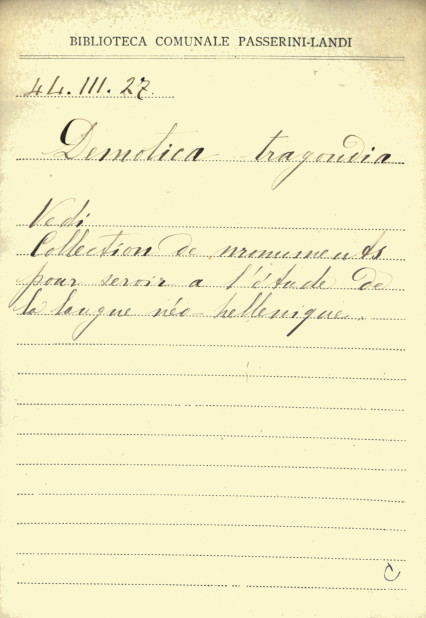 BIBLIOTECA COMUNALE PASSERINI-LANDI
44.III.27
Demotica tragoudia
Vedi
Collection de monuments
pour servir a l'étude de
la langue néo-hellenique.
C